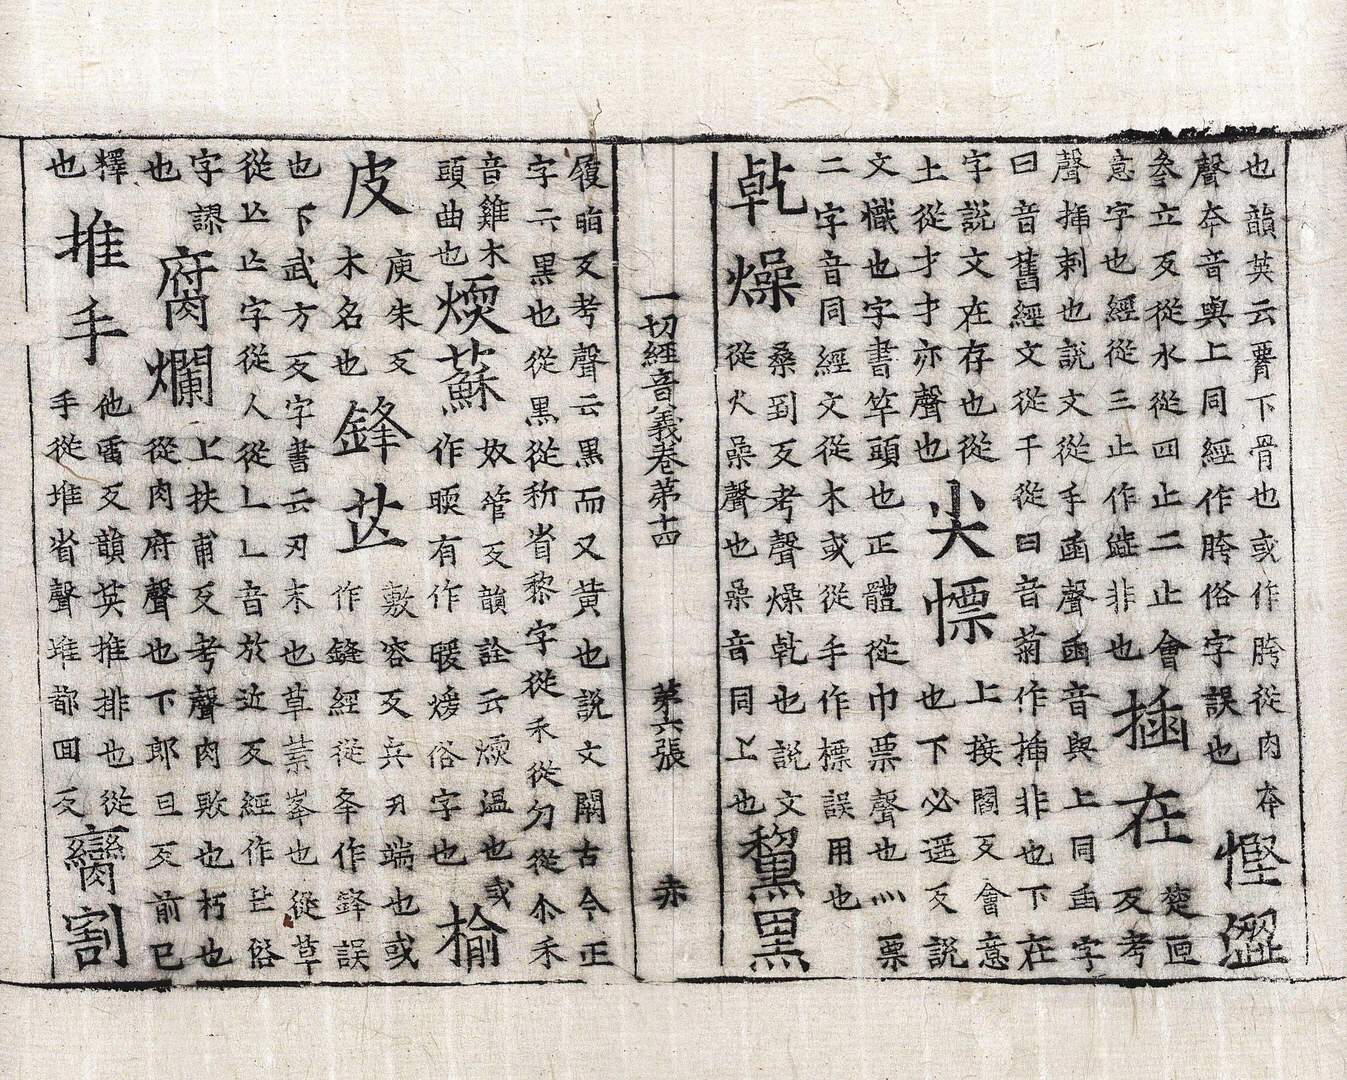 也韻英云䯗下骨也或作胯從肉夸
聲夸音與上同經作胯俗字誤也
慳澀
叅立反從水從四止二止會
意字也經從三止作澁非也
插在
楚匝
反考
聲揷刺也說文從手臿聲臿音與上同臿字
曰音舊經文從千從曰音菊作揷非也下在
字說文在存也從
土從才才亦聲也
尖慓
上接閻反會意
也下必遥反說
文幟也字書竿頭也正體從巾票聲也灬票
二字音同經文從木或從手作標誤用也
乾燥
桑到反考聲燥乾也說文
從火喿聲也喿音同上也
黧黑
一切經音義卷第十四 第六張 赤
履反考聲云黑而又黃也說文闕古今正
字云黑也從黑從称省黎字從禾從勿從尒禾
音雞木
頭曲也
煗蘇
奴管反韻詮云煗溫也或
作㬉有作暖煖俗字也
榆
皮
庾朱反
木名也
鋒芒
敷容反兵刃端也或
作鏠經從夆作鋒誤
也下武方反字書云刃末也草芒峯也從草
從亾亾字從人從乚乚音於近反經作芒俗
字謬
也
腐爛
上扶甫反考聲肉敗也朽也
從肉府聲也下郎旦反前已
釋
也
推手
他雷反韻英推排也從
手從堆省聲堆都回反
臠割